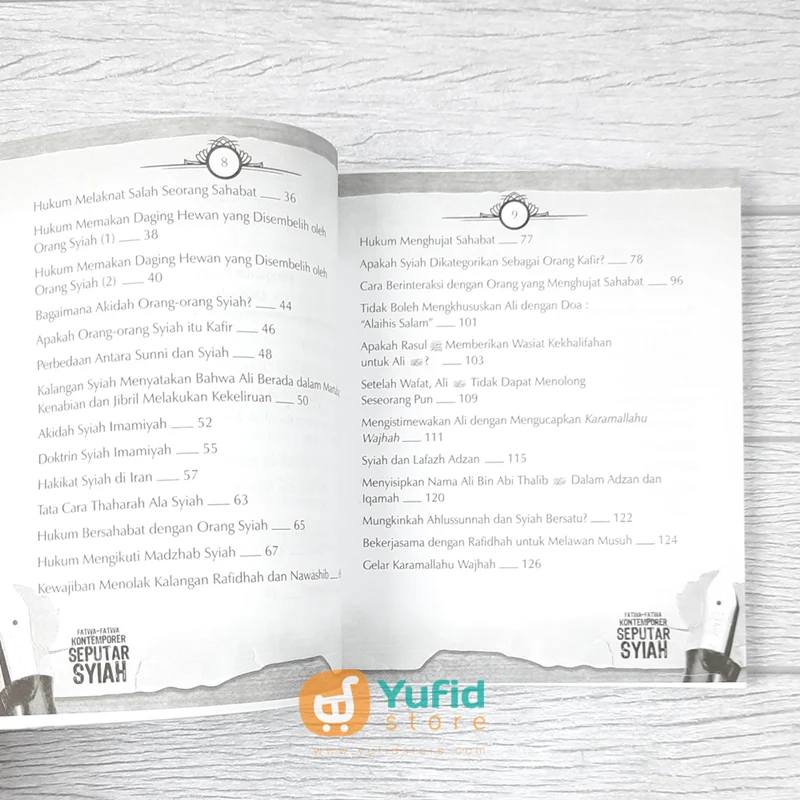 8
Hukum Melaknat Salah Seorang Sahabat ___ 36
Hukum Memakan Daging Hewan yang Disembelih oleh
Orang Syiah (1) ___ 38
Hukum Memakan Daging Hewan yang Disembelih oleh
Orang Syiah (2) ___ 40
Bagaimana Akidah Orang-orang Syiah? ___ 44
Apakah Orang-orang Syiah itu Kafir ___ 46
Perbedaan Antara Sunni dan Syiah ___ 48
Kalangan Syiah Menyatakan Bahwa Ali Berada dalam
Kenabian dan Jibril Melakukan Kekeliruan ___ 50
Akidah Syiah Imamiyah ___ 52
Doktrin Syiah Imamiyah ___ 55
Hakikat Syiah di Iran ___ 57
Tata Cara Thaharah Ala Syiah ___ 63
Hukum Bersahabat dengan Orang Syiah ___ 65
Hukum Mengikuti Madzhab Syiah ___ 67
Kewajiban Menolak Kalangan Rafidhah dan Nawashib ___
FATWA-FATWA
KONTEMPORER
SEPUTAR
SYIAH
9
Hukum Menghujat Sahabat ___ 77
Apakah Syiah Dikategorikan Sebagai Orang Kafir? ___ 78
Cara Berinteraksi dengan Orang yang Menghujat Sahabat ___ 96
Tidak Boleh Mengkhususkan Ali dengan Doa :
"Alaihis Salam" ___ 101
Apakah Rasul ﷺ Memberikan Wasiat Kekhalifahan
untuk Ali ? ___ 103
Setelah Wafat, Ali Tidak Dapat Menolong
Seseorang Pun ___ 109
Mengistimewakan Ali dengan Mengucapkan Karamallahu
Wajhah ___ 111
Syiah dan Lafazh Adzan ___ 115
Menyisipkan Nama Ali Bin Abi Thalib Dalam Adzan dan
Iqamah ___ 120
Mungkinkah Ahlussunnah dan Syiah Bersatu? ___ 122
Bekerjasama dengan Rafidhah untuk Melawan Musuh ___ 124
Gelar Karamallahu Wajhah ___ 126
FATWA-FATWA
KONTEMPORER
SEPUTAR
SYIAH
Yufid
store
www.yufidstore.com